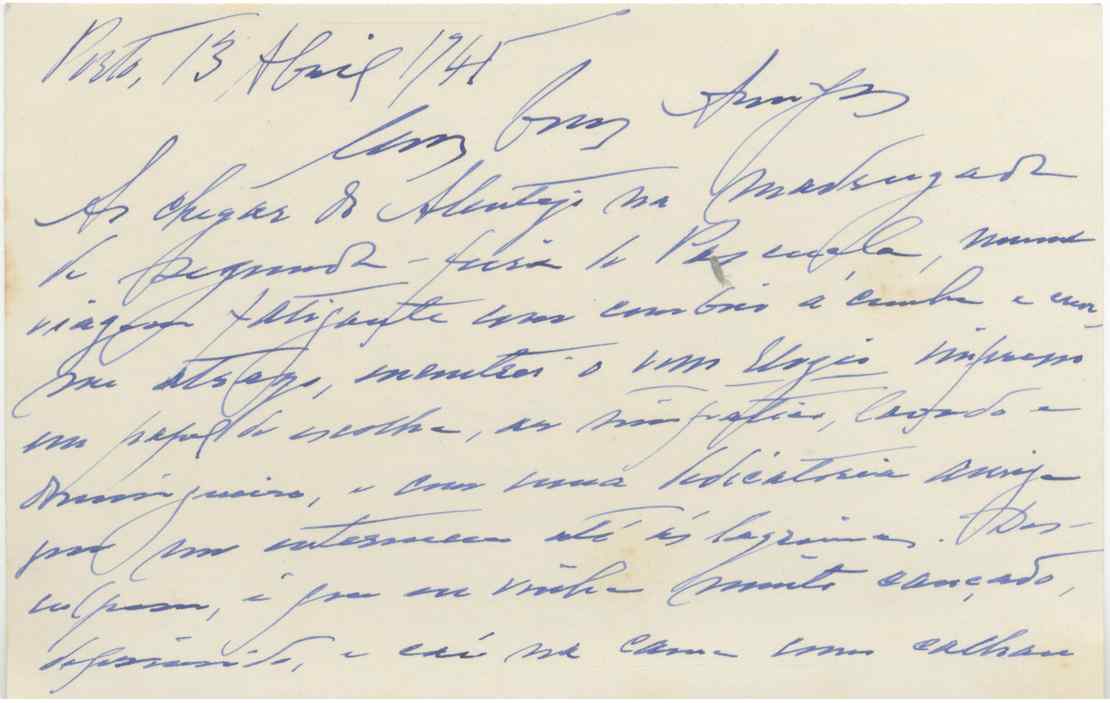 Porto, 13 Abril 1945
Meus bons Amigos
Ao chegar do Alentejo na madrugada
de segunda-feira de Pascoela, numa
viagem fatigante com comboio á cunha e enor-
me atrazo, encontrei o vosso Elogio impresso
em papel de escolha, ar
domingueiro, e com uma dedicatoria amiga
que me enterneceu até ás lagrimas. Des-
culpem, é que eu vinha muito cançado,
deprimido, e caí na cama como calhau